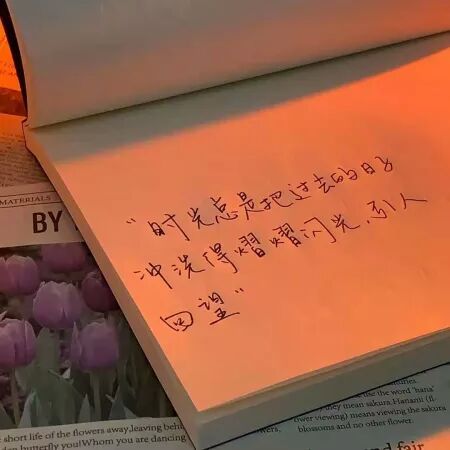 MATERIALS
BY
"时光总是把过去的日子
冲洗得熠熠闪光,引人
回望"
short life of the flowers away,leaving behi
butterfly you!Whom you are dancing
use the word 'hana'
they mean sakura. Hanami (fl
ower viewing) means viewing the sakura
blossoms and no other flower.
and fair